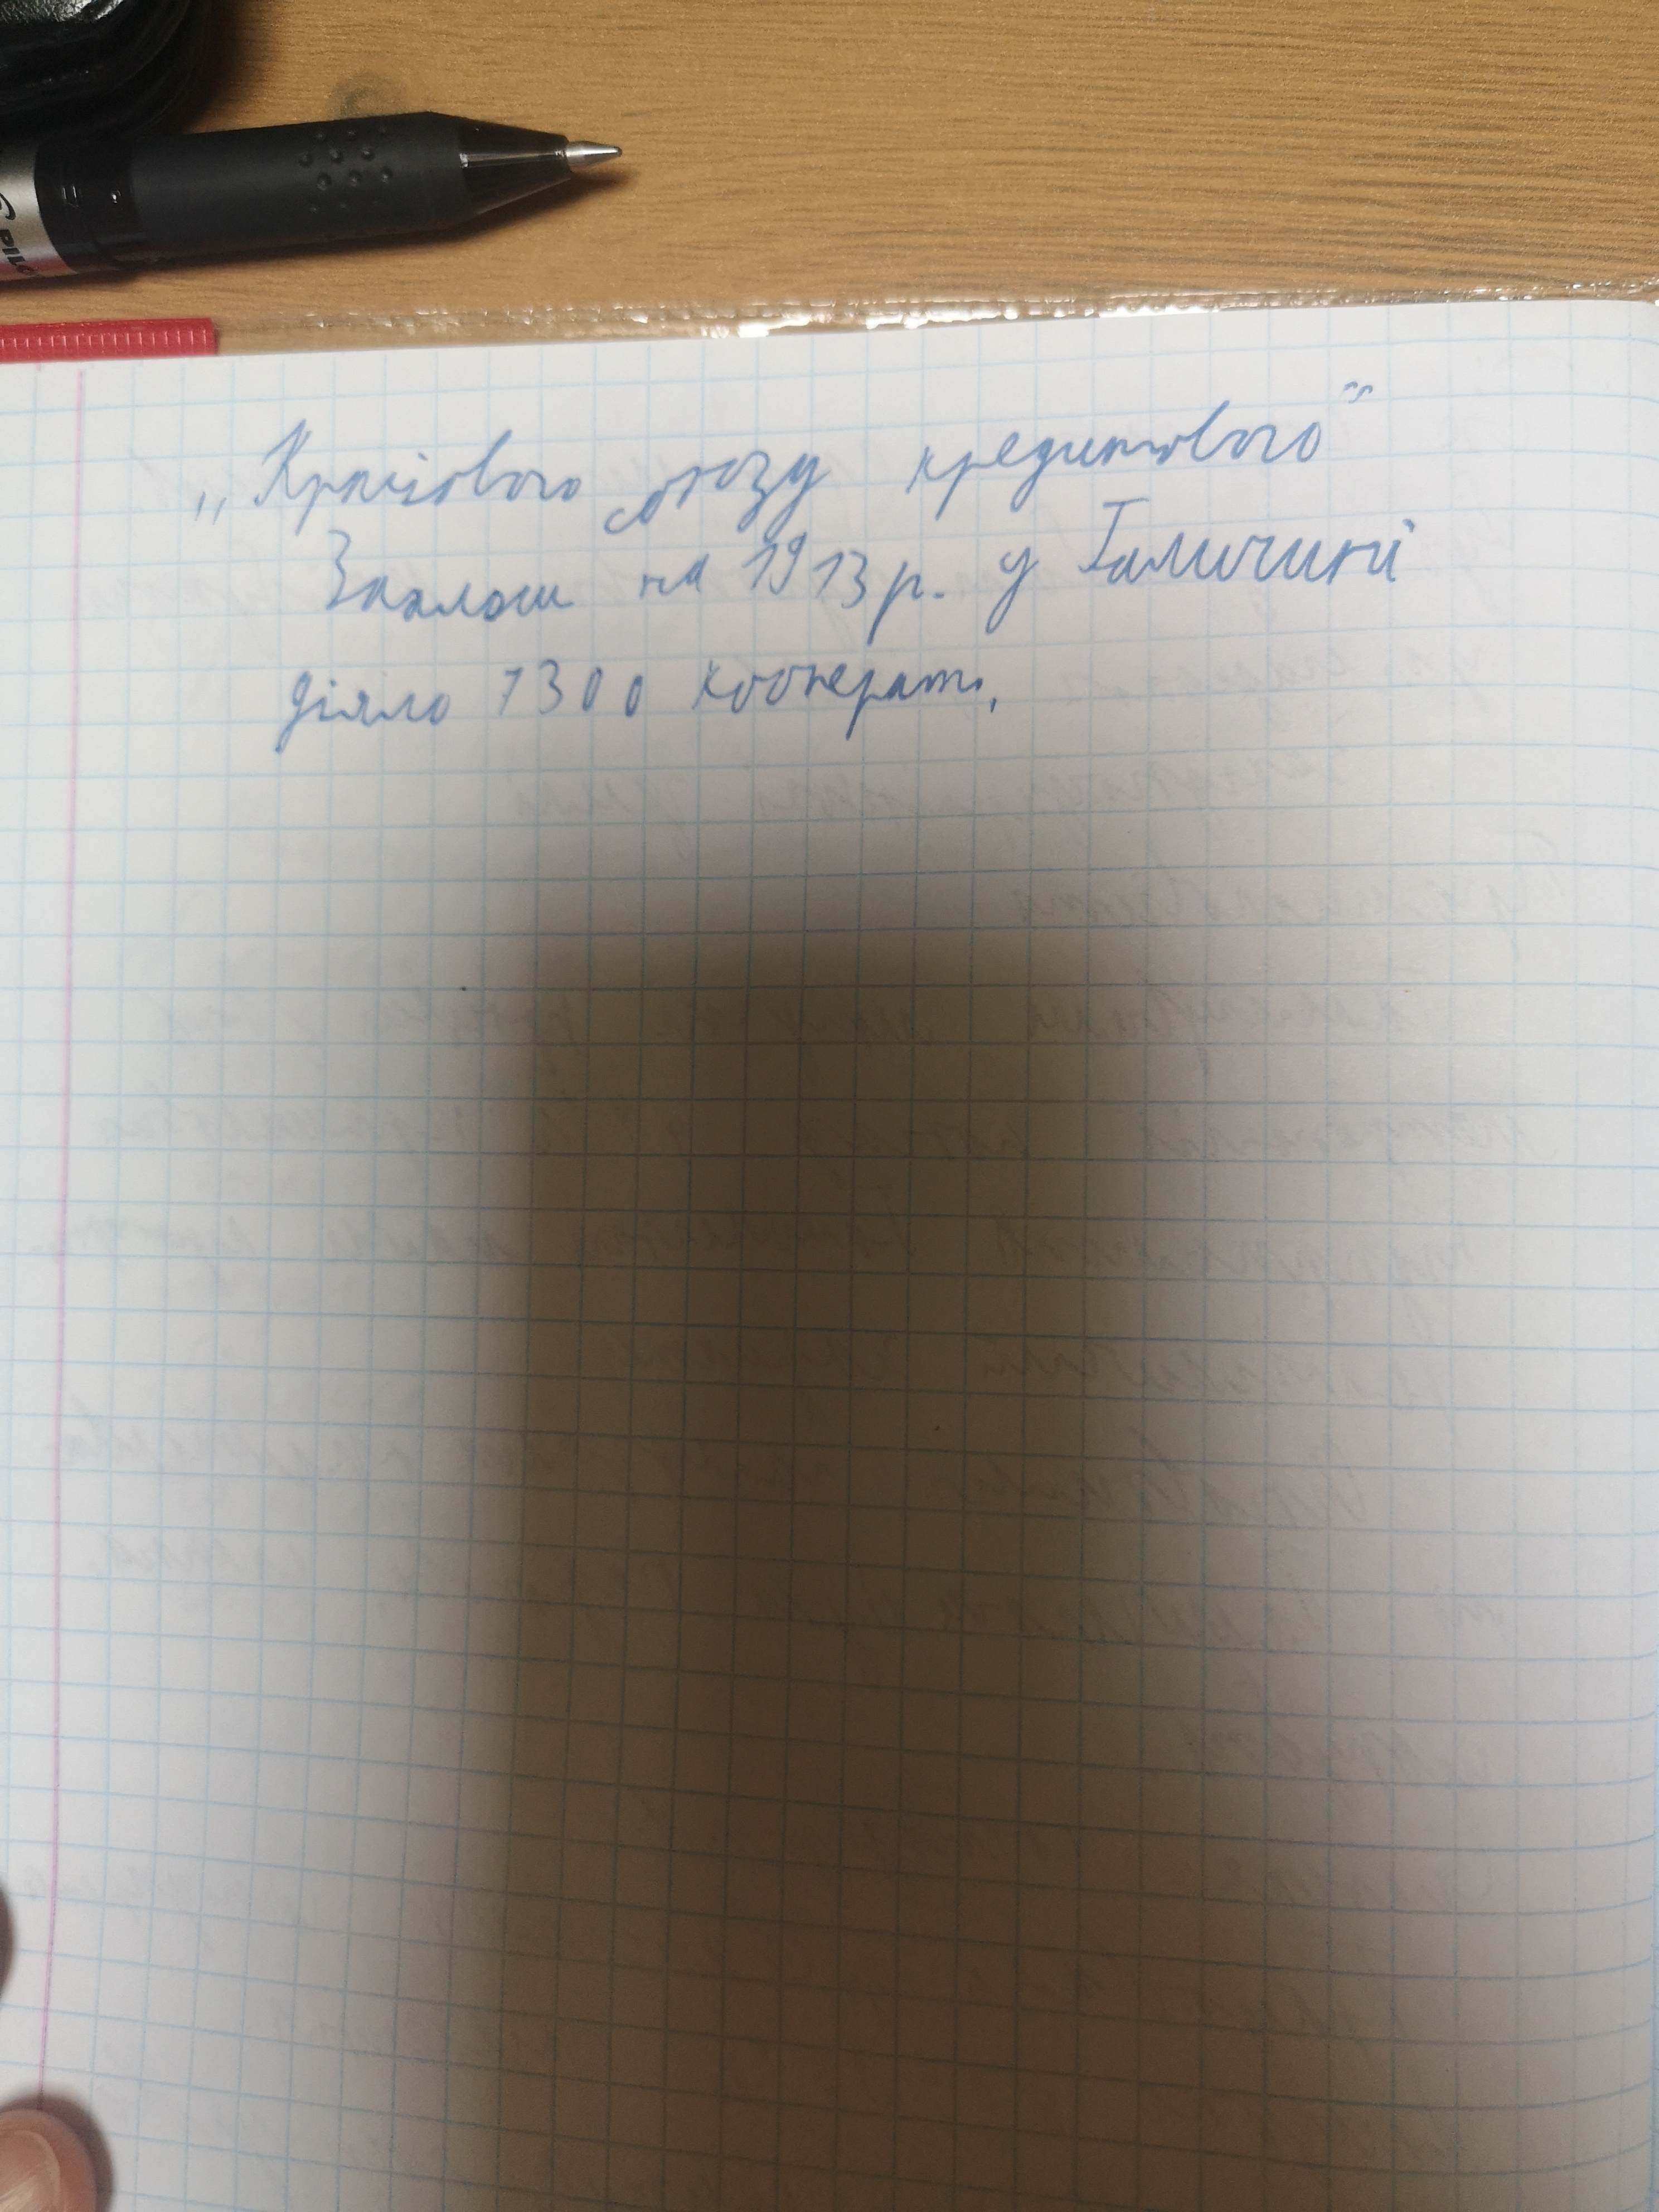 PILOT
„Краєвого союзу кредитового"
Загалом на 1913 р. у Галичині
діяло 1300 кооперат.